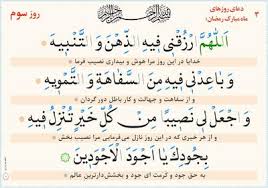 ۳ دعای روزهای ماه مبارک رمضان
روز سوم
اَللّٰهُمَّ ارْزُقْنی فیهِ الذِّهْنَ وَ التَّنْبیهَ
خدایا در این روز مرا هوش و بیداری نصیب فرما
وَ باعِدْنی فیهِ مِنَ السَّفاهَةِ وَ التَّمْویهِ
و از سفاهت و جهالت و کار باطل دور گردان
وَ اجْعَلْ لی نَصیبًا مِنْ كُلِّ خَیْرٍ تُنْزِلُ فیهِ
و از هر خیری که در این روز نازل می‌فرمایی مرا نصیب بخش
بِجُودِكَ یا اَجْوَدَ الْاَجْوَدینَ
به حق جود و کرمت ای جود و بخشش‌دارترین عالم